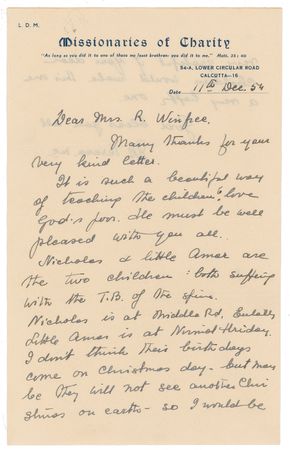 L.D.M.
Missionaries of Charity
"As long as you did it to one of these my least brethren, you did it to me." Matt. 25: 40
54-A, LOWER CIRCULAR ROAD
CALCUTTA-16
Date 11th Dec. 54
Dear Mrs. R. Winfree.
Many thanks for your
very kind letter.
It is such a beautiful way
of teaching the children to love
God's poor. He must be well
pleased with you all.
Nicholas & little Amar are
the two children: both suffering
with the T.B. of the spine.
Nicholas is at Middle Rd, Entally
Little Amar is at Nirmal Hriday.
I don't think their birthdays
come on Christmas day - but may
be they will not see another Chri
stmas on earth - so I would be